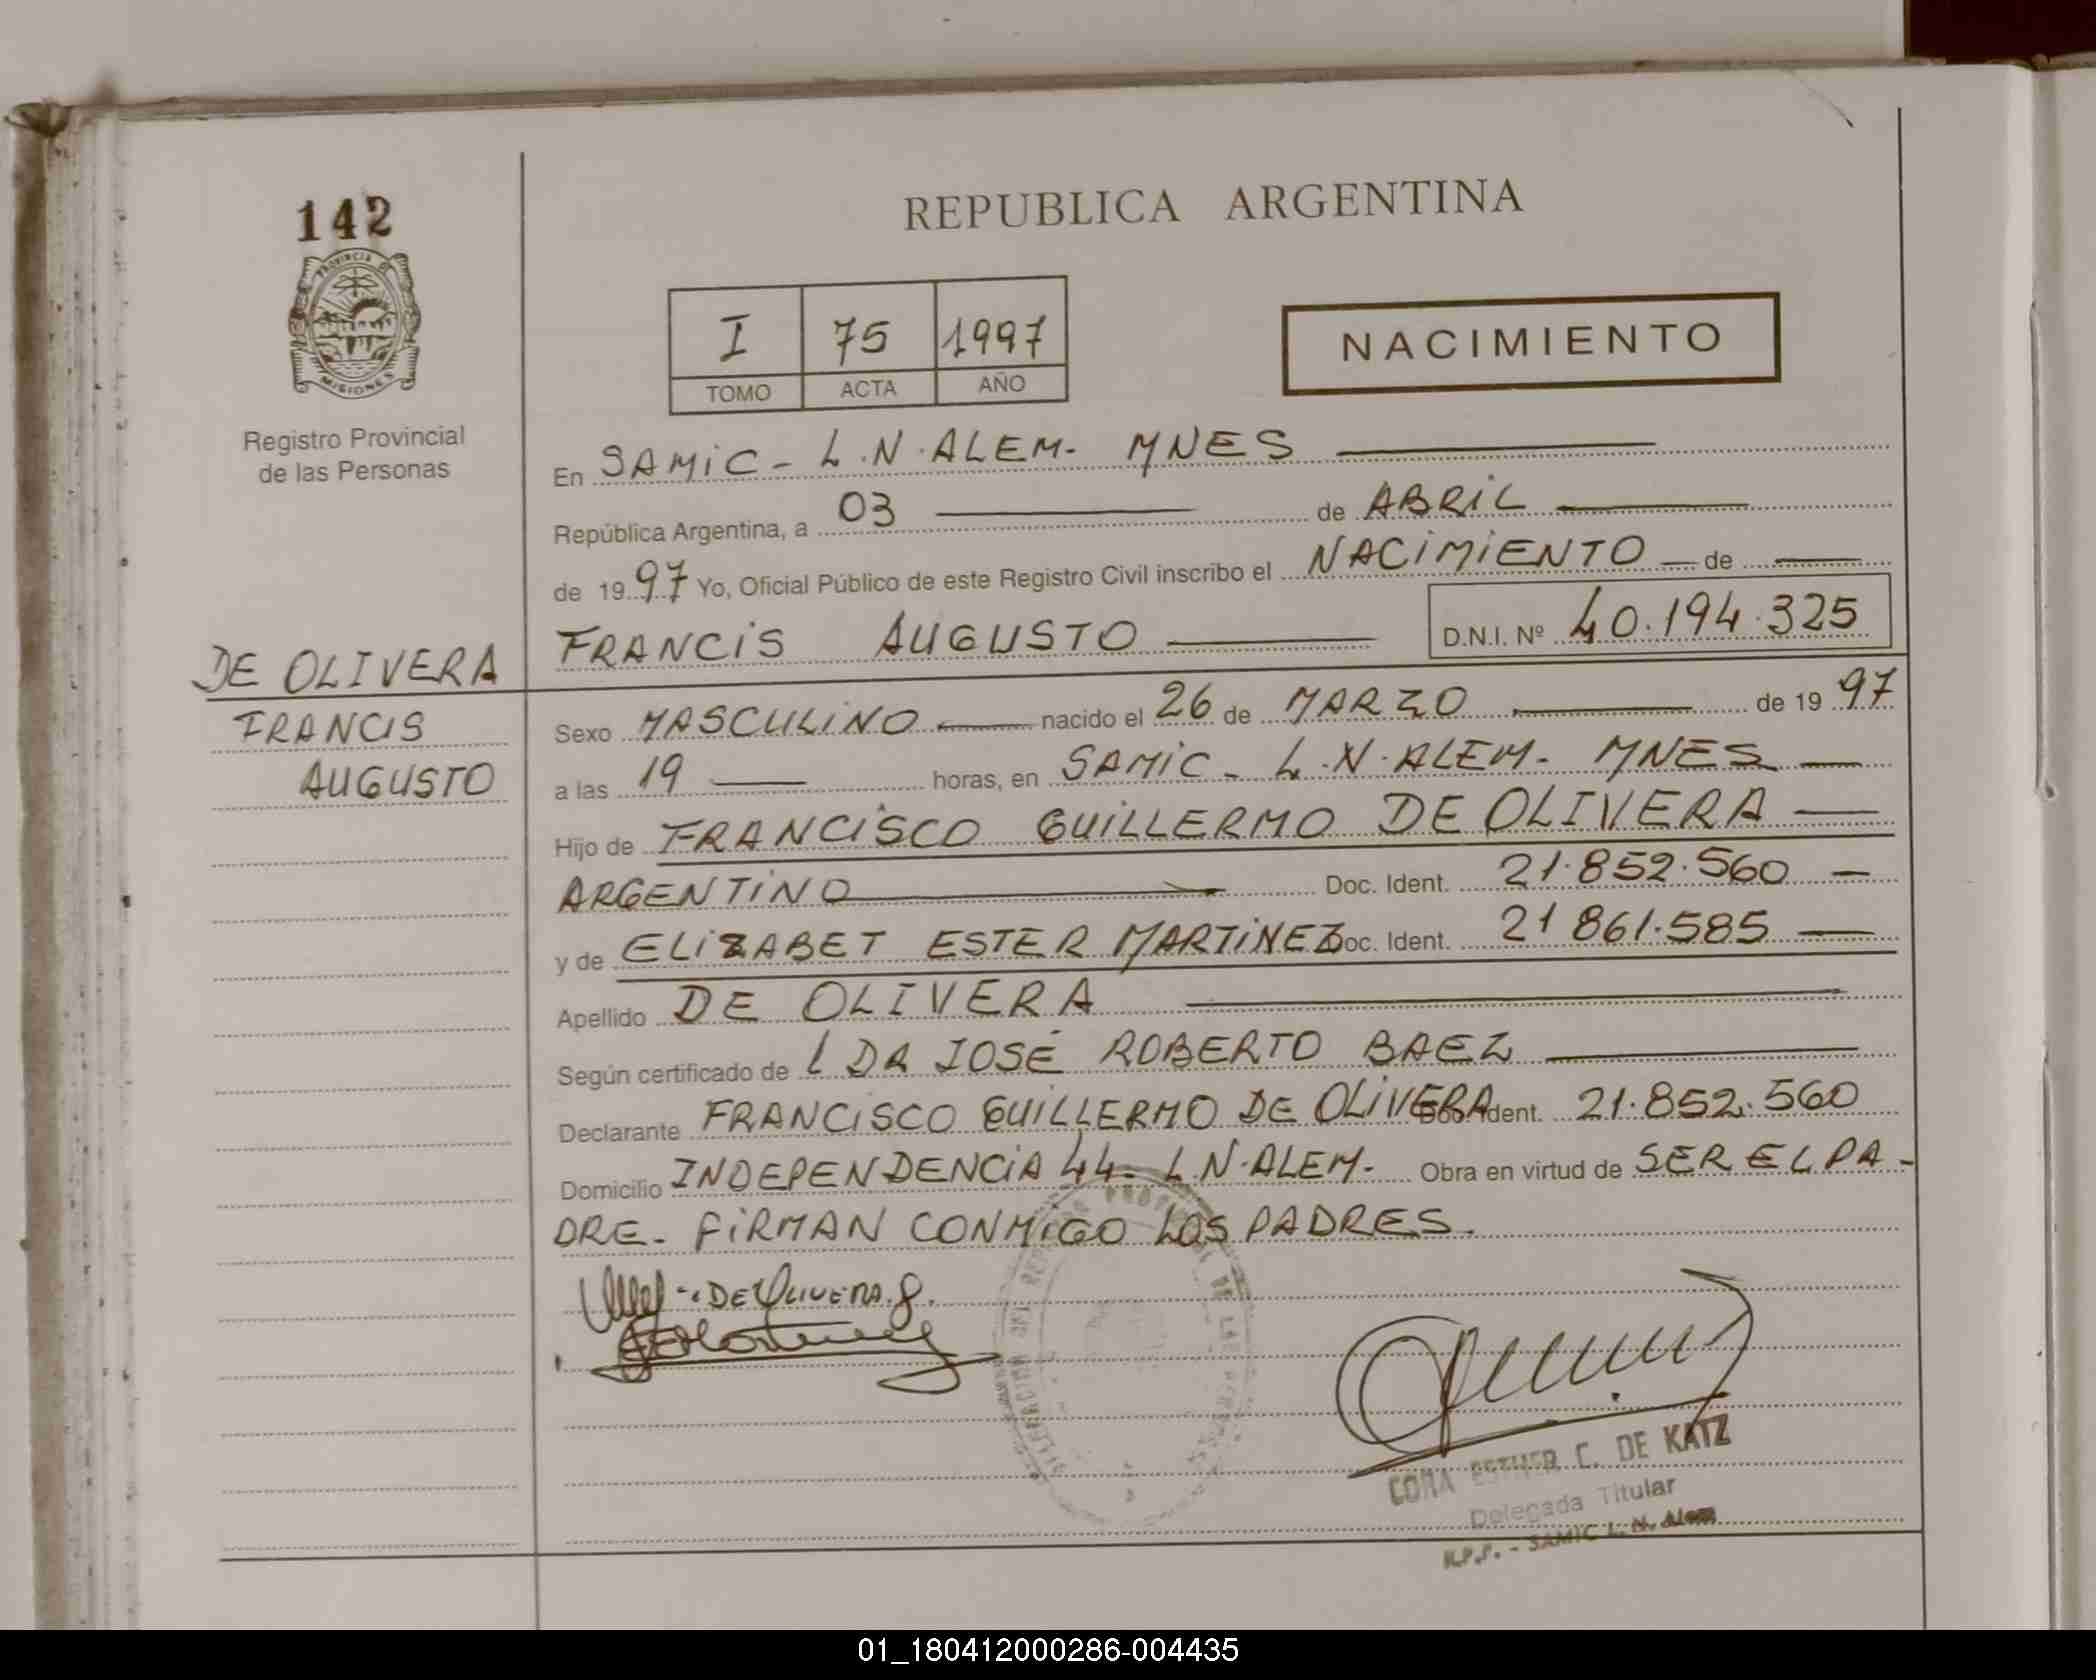 142
REPUBLICA ARGENTINA
PROVINCIA DE
MISIONES
Registro Provincial
de las Personas
I 75 1997
TOMO ACTA AÑO
NACIMIENTO
En SAMIC - L.N.ALEM- MNES
República Argentina, a 03 de ABRIL
de 1997 Yo, Oficial Público de este Registro Civil inscribo el NACIMIENTO de
FRANCIS AUGUSTO D.N.I. Nº 40.194.325
DE OLIVERA
FRANCIS
AUGUSTO
Sexo MASCULINO nacido el 26 de MARZO de 1997
a las 19 horas, en SAMIC - L.N.ALEM- MNES
Hijo de FRANCISCO GUILLERMO DE OLIVERA
ARGENTINO Doc. Ident. 21.852.560
y de ELIZABET ESTER MARTINEZ Doc. Ident. 21 861.585
Apellido DE OLIVERA
Según certificado de DR JOSÉ ROBERTO BAEZ
Declarante FRANCISCO GUILLERMO DE OLIVERA Doc. Ident. 21.852.560
Domicilio INDEPENDENCIA 44- L N.ALEM. Obra en virtud de SER EL PA-
DRE- FIRMAN CONMIGO LOS PADRES.
DE OLIVERA. G.
ESTHER C. DE KATZ
Delegada Titular
SAMIC L. N. Alem
01_180412000286-004435